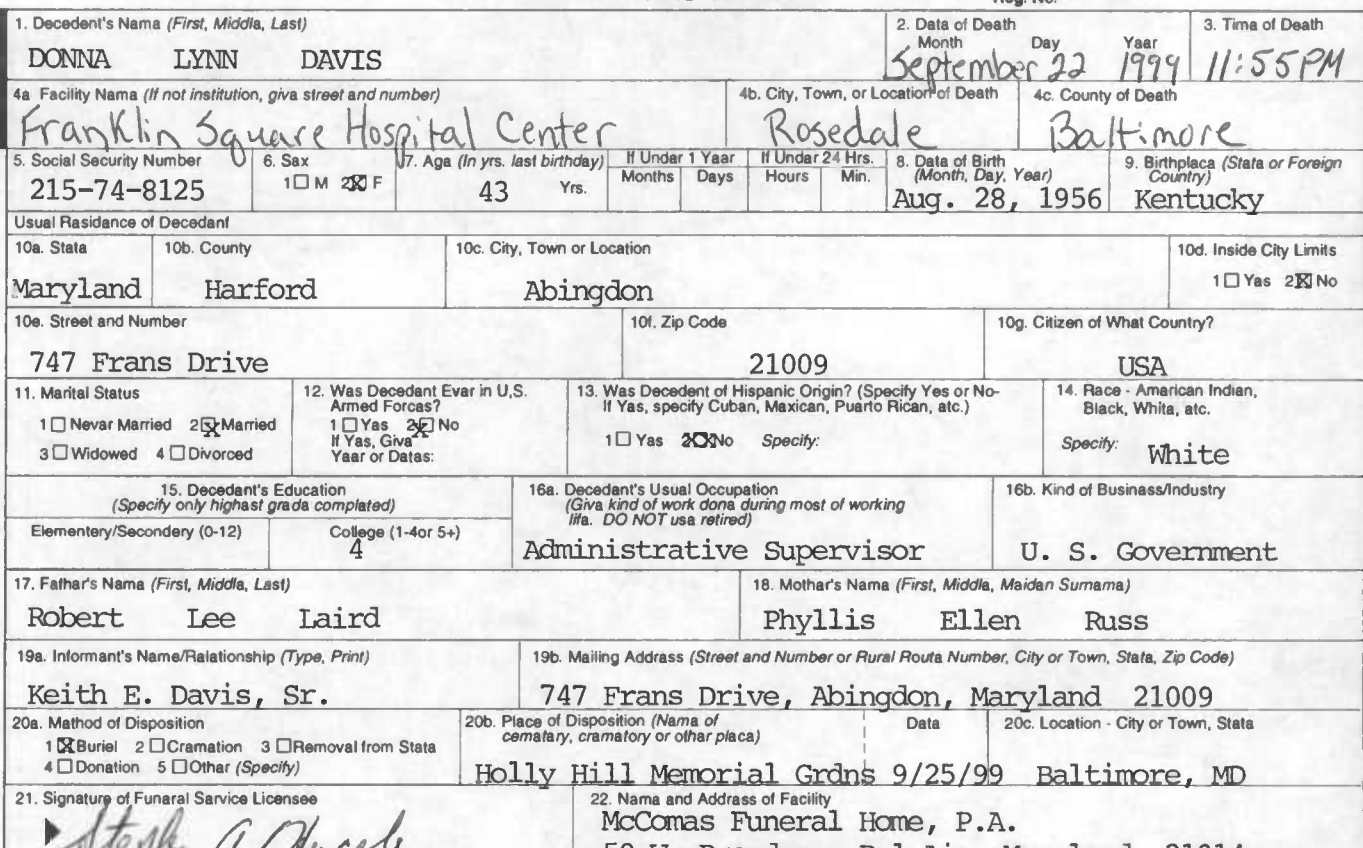 1. Decedent's Name (First, Middla, Last)
DONNA LYNN DAVIS
2. Data of Death
Month Day Yaar
September 22 1999
3. Tima of Death
11:55PM
4a Facility Name (If not institution, giva street and number)
Franklin Square Hospital Center
4b. City, Town, or Location of Death
Rosedale
4c. County of Death
Baltimore
5. Social Security Number
215-74-8125
6. Sax
1☐ M 2☒ F
7. Aga (In yrs. last birthday)
43 Yrs.
If Under 1 Yaar
Months Days
If Under 24 Hrs.
Hours Min.
8. Data of Birth
(Month, Day, Year)
Aug. 28, 1956
9. Birthplaca (Stata or Foreign
Country)
Kentucky
Usual Rasidance of Decedant
10a. Stata
Maryland
10b. County
Harford
10c. City, Town or Location
Abingdon
10d. Inside City Limits
1☐ Yas 2☒ No
10e. Street and Number
747 Frans Drive
10f. Zip Code
21009
10g. Citizen of What Country?
USA
11. Marital Status
1☐ Nevar Married 2☒ Married
3☐ Widowed 4☐ Divorced
12. Was Decedant Evar in U,S.
Armed Forcas?
1☐ Yas 2☒ No
If Yas, Giva
Yaar or Datas:
13. Was Decedent of Hispanic Origin? (Specify Yes or No-
If Yas, specify Cuban, Maxican, Puarto Rican, atc.)
1☐ Yas 2☒ No Specify:
14. Race - American Indian,
Black, Whita, atc.
Specify: White
15. Decedant's Education
(Specify only highast grada complated)
Elementery/Secondery (0-12)
College (1-4or 5+)
4
16a. Decedant's Usual Occupation
(Giva kind of work dona during most of working
lifa. DO NOT usa retired)
Administrative Supervisor
16b. Kind of Businass/Industry
U. S. Government
17. Fathar's Name (First, Middla, Last)
Robert Lee Laird
18. Mothar's Nama (First, Middla, Maidan Surnama)
Phyllis Ellen Russ
19a. Informant's Nama/Ralationship (Type, Print)
Keith E. Davis, Sr.
19b. Mailing Address (Street and Number or Rural Routa Number, City or Town, Stata, Zip Code)
747 Frans Drive, Abingdon, Maryland 21009
20a. Mathod of Disposition
1☒ Buriel 2☐ Cramation 3☐ Removal from Stata
4☐ Donation 5☐ Othar (Specify)
20b. Place of Disposition (Nama of
cematary, cramatory or othar placa)
Holly Hill Memorial Grdns
Data
9/25/99
20c. Location - City or Town, Stata
Baltimore, MD
21. Signature of Funaral Sarvice Licensee
22. Nama and Address of Facility
McComas Funeral Home, P.A.